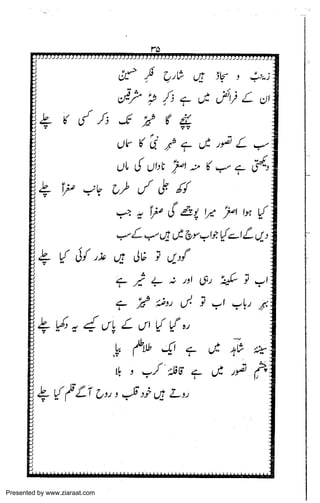 ۳۵
زینبؑ و سجادؑ ہیں شارحِ فکرِ حسینؑ
ان کے فرائض میں ہے ذکرِ شہِؑ مشرقین
پہنچے گا شبیرؑ تک ذکر کسی کا چلے
سب کے تصور میں ہے شہرِ نبیؐ کا سماں
دیکھتی ہے سب کا منہ اصغرِؑ ناداں کی ماں
کوکھ جلی کس طرح جانبِ صغراؑ چلے
کیا ہوا اصغرؑ میرا پوچھے گی صغراؑ یہ جب
دیں گے اسے کیا جواب سوچ میں ہیں سب کے سب
گودیں تو خالی ہیں عذر کوئی کیا چلے
اب تو سکینہؑ رہی اور نہ بے شیرؑ ہے
بہرِ ربابؑ اب تو بس روضۂ شبیرؑ ہے
رہ گیا کیا اس کے پاس کیسے یہ دکھیا چلے
سینۂ شاہدؔ میں ہے ایک تلاطم بپا
چشمِ تصور میں ہے قافلۂ کرب و بلا
روتے ہیں خود قلب و روح آگے قلم کیا چلے
Presented by www.ziaraat.com